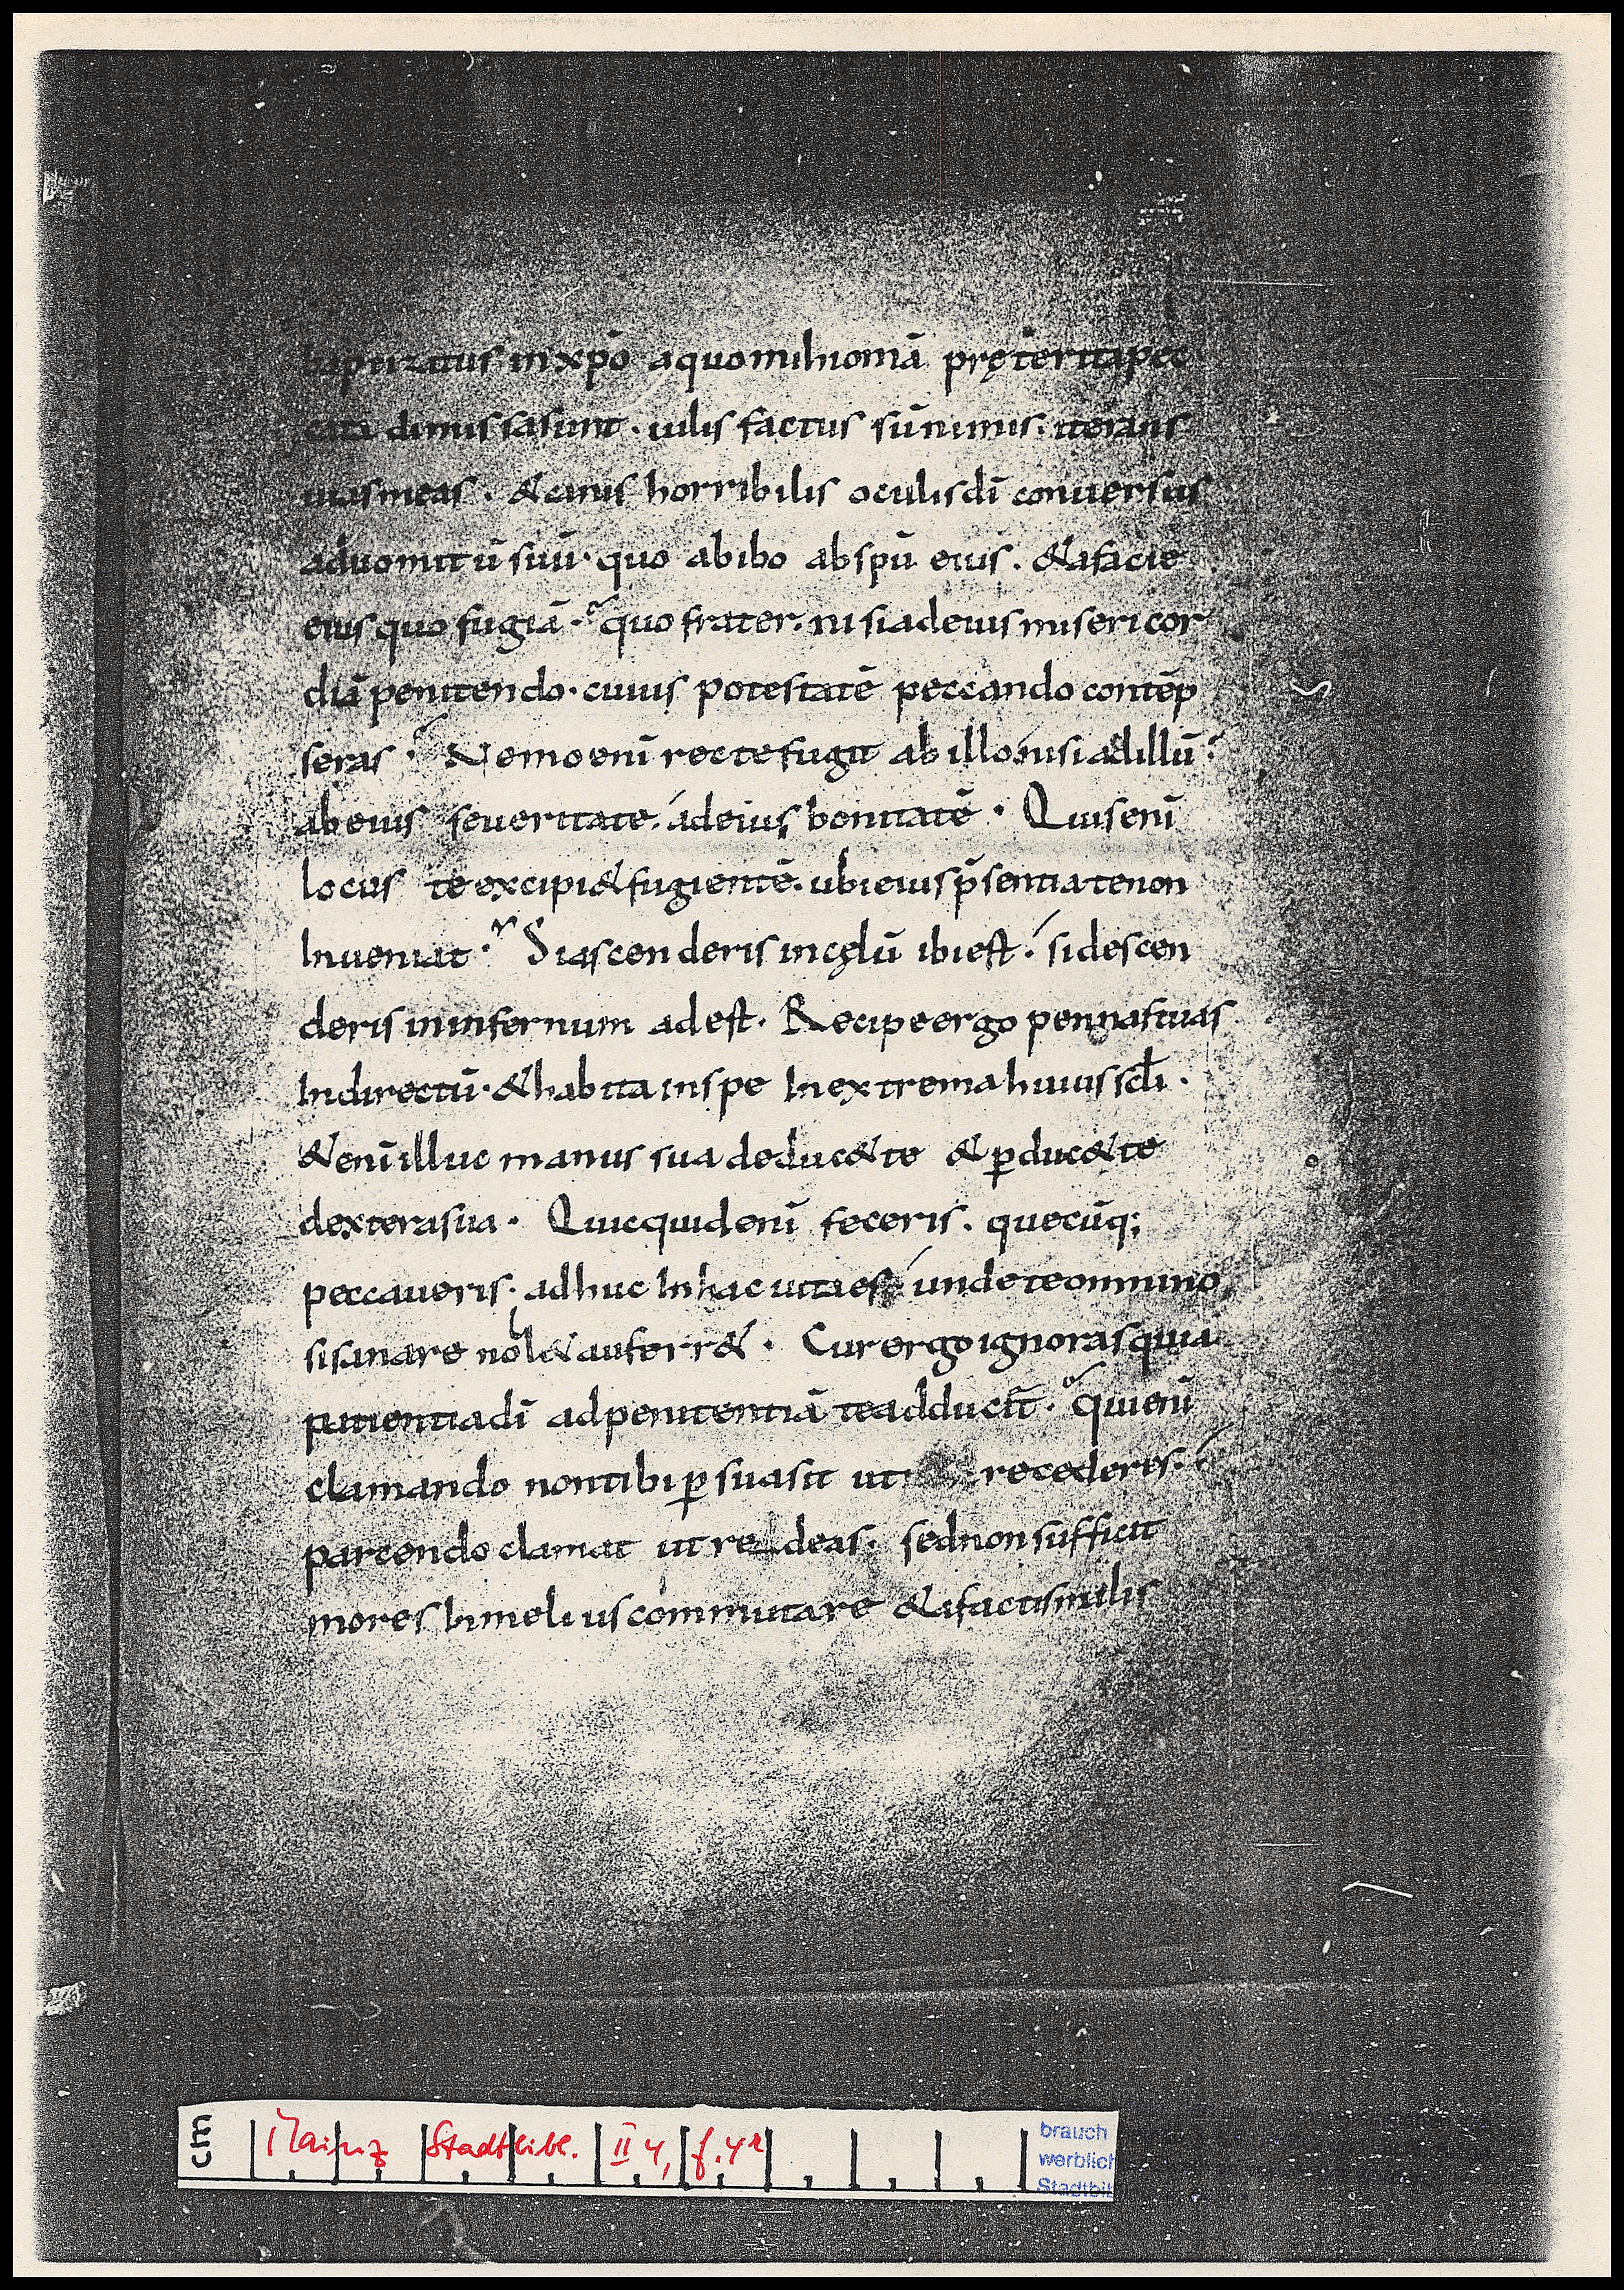 baptizatus in xpō a quo mihi omā pręterita pec
cata dimissa sunt · uilis factus sū nimis · iterans
uias meas · & canis horribilis oculis dī conuersus
ad uomitū suū · quo abibo ab spū eius · & a facie
eius quo fugiā · quo frater · nisi ad eius misericor
diā penitendo · cuius potestatē peccando contēp
seras · Nemo enī recte fugit ab illo nisi ad illū ·
ab eius seueritate · ad eius bonitatē · Quis enī
locus te excipi& fugientē · ubi eius p̄sentia te non
Inueniat · Si ascenderis in cęlū ibi est · si descen
deris in infernum adest · Recipe ergo pennas tuas
In directū · & habita in spe In extrema huius scłi ·
& enī illuc manus sua deduc& te & ꝑduc& te
dextera sua · Quicquid enī feceris · quecūq;
peccaueris · adhuc In hac uita es unde te omnino
si sanare noll& auferr& · Cur ergo ignoras quia
patientia dī ad penitentiā te adducit · qui enī
clamando non tibi ꝑsuasit ut recederes ·
parcendo clamat ut redeas · sed non sufficit
mores In melius commutare & a factis malis
cm Mainz Stadtbibl. II 4, f. 4r
brauch
werblich
Stadtbi